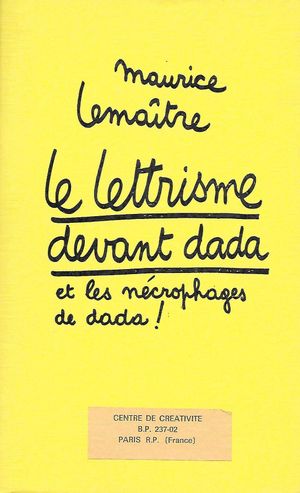 maurice
lemaître
le lettrisme
devant dada
et les nécrophages
de dada !
CENTRE DE CREATIVITE
B.P. 237-02
PARIS R.P. (France)